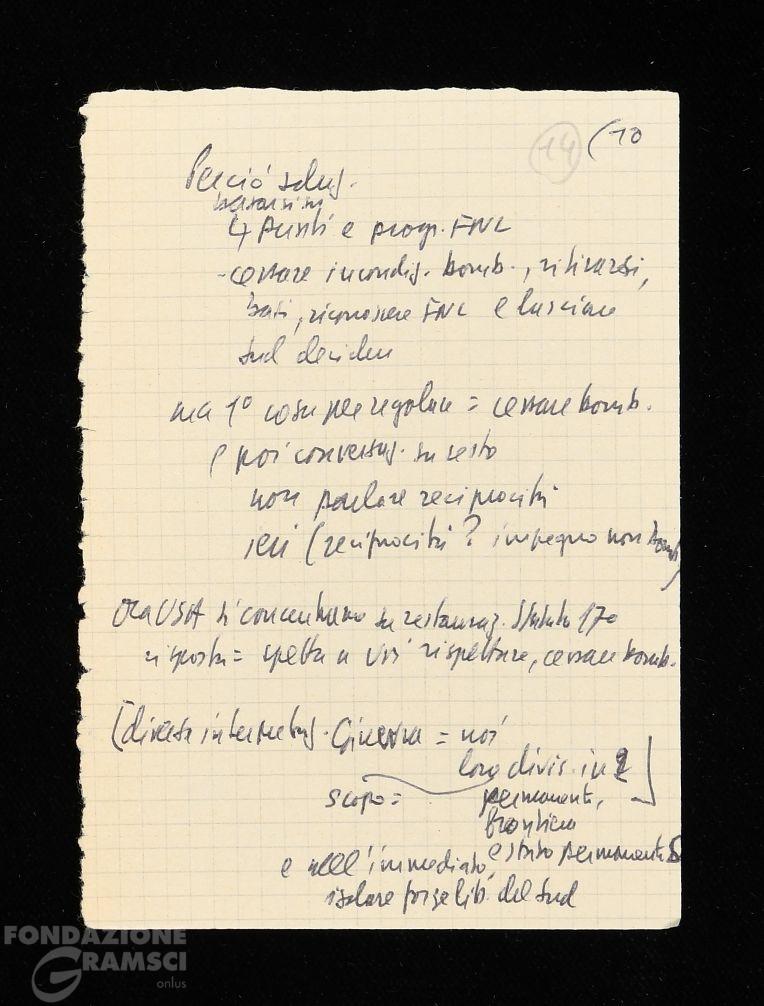 (14) (10
Perciò soluz.
basarsi su
4 Punti e progr. FNL
- cessare incondiz. bomb., ritirarsi,
basi, riconoscere FNL e lasciare
Sud decidere
ma 1° cosa per regolare = cessare bomb.
e poi conversaz. su resto
non parlare reciprocità
ieri (reciprocità? impegno non bomb)
Ora USA si concentrano su restauraz. Statuto 17º
risposta = spetta a USA rispettare, cessare bomb.
[diversa interpretaz. Ginevra = noi
loro divis. in 2
scopo = permanente,
frontiera
e stato permanente
e nell'immediato,
isolare forze lib. del Sud
FONDAZIONE
GRAMSCI
onlus